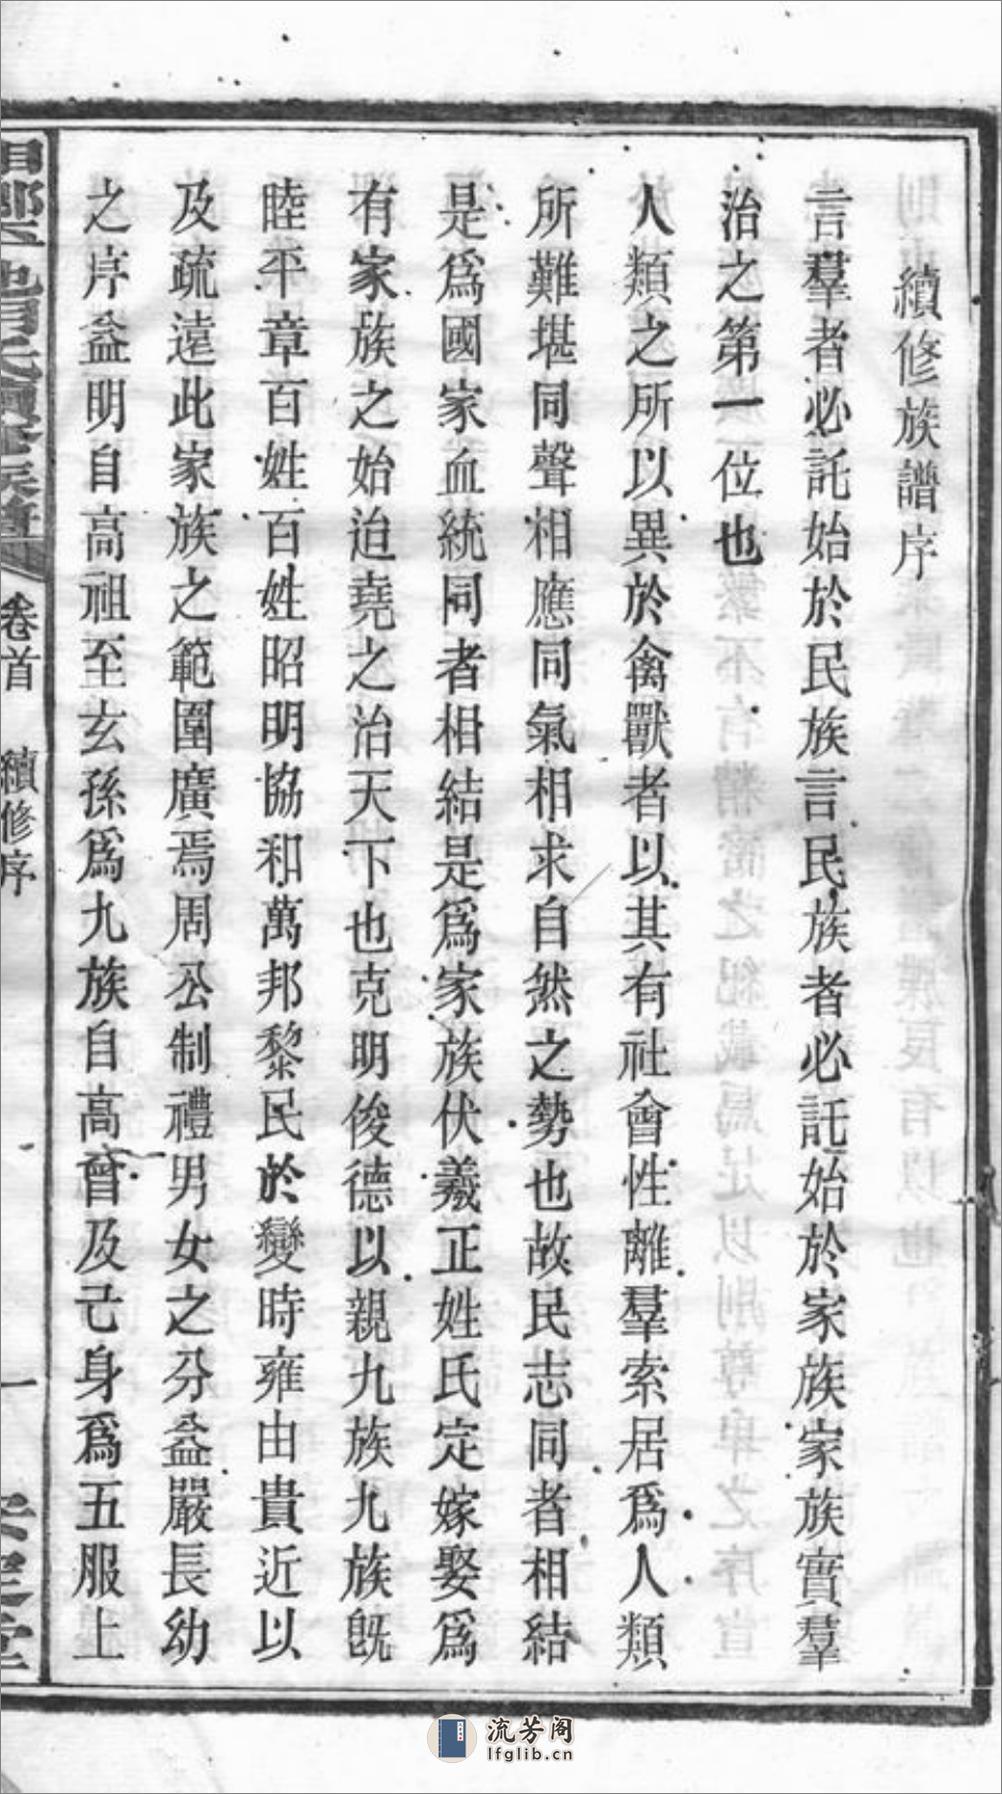 續修族譜序
言羣者必託始於民族言民族者必託始於家族家族實羣
治之第一位也
人類之所以異於禽獸者以其有社會性離羣索居爲人類
所難堪同聲相應同氣相求自然之勢也故民志同者相結
是爲國家血統同者相結是爲家族伏羲正姓氏定嫁娶爲
有家族之始迨堯之治天下也克明俊德以親九族九族旣
睦平章百姓百姓昭明協和萬邦黎民於變時雍由貴近以
及疏遠此家族之範圍廣焉周公制禮男女之分益嚴長幼
之序益明自高祖至玄孫爲九族自高曾及己身爲五服上
卷首 續修序 一
流芳阁
lfglib.cn